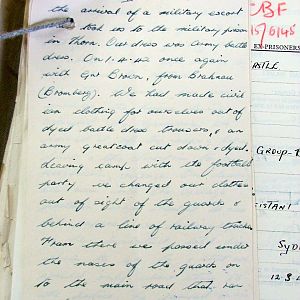 the arrival of a military escort
took us to the military prison
in Thorn. Our dress was army battle
dress. On 1.4.42 once again
with Gnr Brown, from Brahnau
(Bromberg). We had made civil-
ian clothing for ourselves out of
dyed battle dress trousers, & an
army greatcoat cut down & dyed.
Leaving camp with the football
party we changed our clothes
out of sight of the guards &
behind a line of railway trucks
From there we passed under
the noses of the guards on
to the main road that ran
BF
15/6/45
EX-PRISONERS
GROUP-
ISTANT
SYD
12.3.